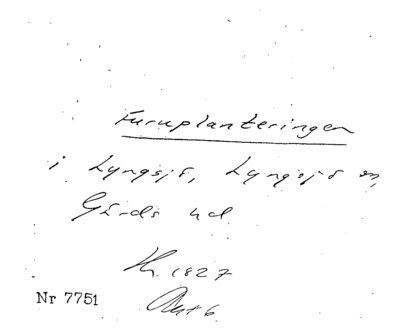 Furuplanteringen
i Lyngsjö, Lyngsjö sn,
Gärds hd
Kr. 1827
Nr 7751